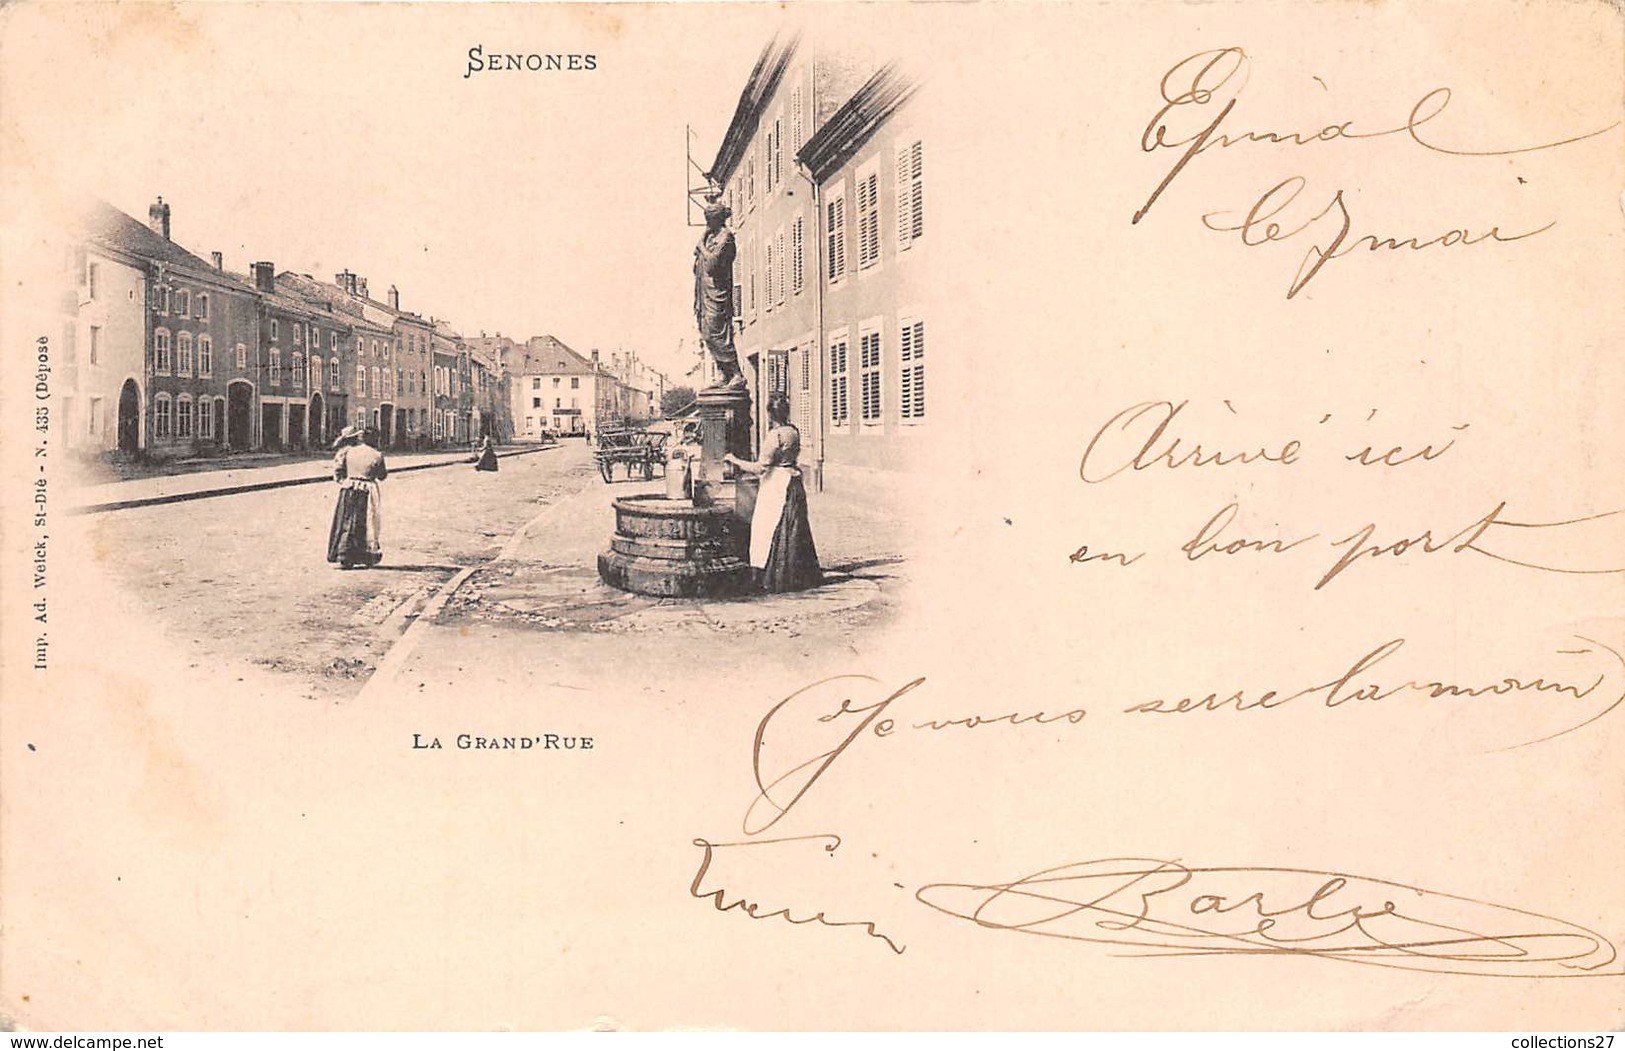 SENONES
Imp. Ad. Weick, St-Dié - N. 435 (Déposé
LA GRAND'RUE
Epinal
le 7 mai
Arrivé ici
en bon port
Je vous serre la main
Lucien Barlie
www.delcampe.net
collections27